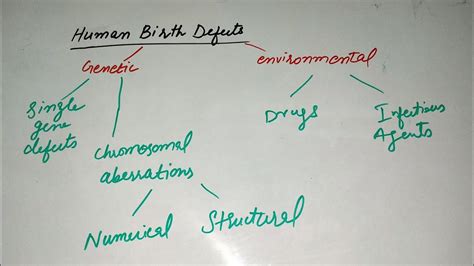 Human Birth Defects
Genetic
environmental
Single
gene
defects
Chromosomal
aberrations
Drugs
Infectious
Agents
Numerical
Structural